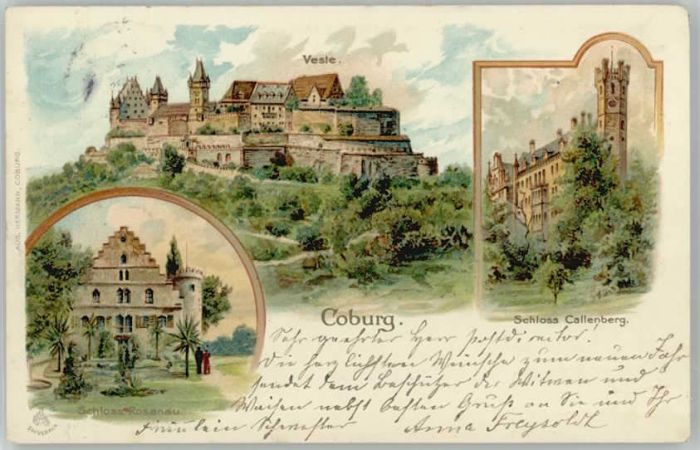 Veste.
AUG. HERMANN, COBURG.
Coburg.
Schloss Callenberg.
Schloss Rosenau.
Sehr geehrter Herr Postdirector.
Die herzlichsten Wünsche zum neuen Jahr
sendet dem Beschützer der Witwen und
Waisen nebst besten Gruß an Sie und Ihr
Fräulein Schwester Anna Freysoldt